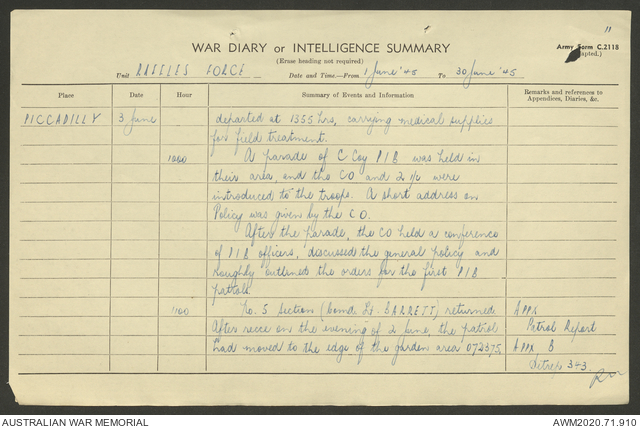 11
WAR DIARY or INTELLIGENCE SUMMARY
(Erase heading not required)
Army Form C.2118
(Adapted.)
Unit RAFFLES FORCE Date and Time.—From 1 June '45 To 30 June '45
Place Date Hour Summary of Events and Information Remarks and references to Appendices, Diaries, &c.
PICCADILLY 3 June departed at 1355 hrs, carrying medical supplies
for field treatment.
1000 A parade of C Coy PIB was held in
their area, and the CO and 2 i/c were
introduced to the troops. A short address on
Policy was given by the CO.
After the parade, the CO held a conference
of PIB officers, discussed the general policy and
roughly outlined the orders for the first PIB
patrols.
1100 No. 5 Section (Comde Lt. BARRETT) returned APPX
After recce on the evening of 2 June, the patrol Patrol Report
had moved to the edge of the garden area 072375. APPX B
Sitrep 343.
AUSTRALIAN WAR MEMORIAL
AWM2020.71.910